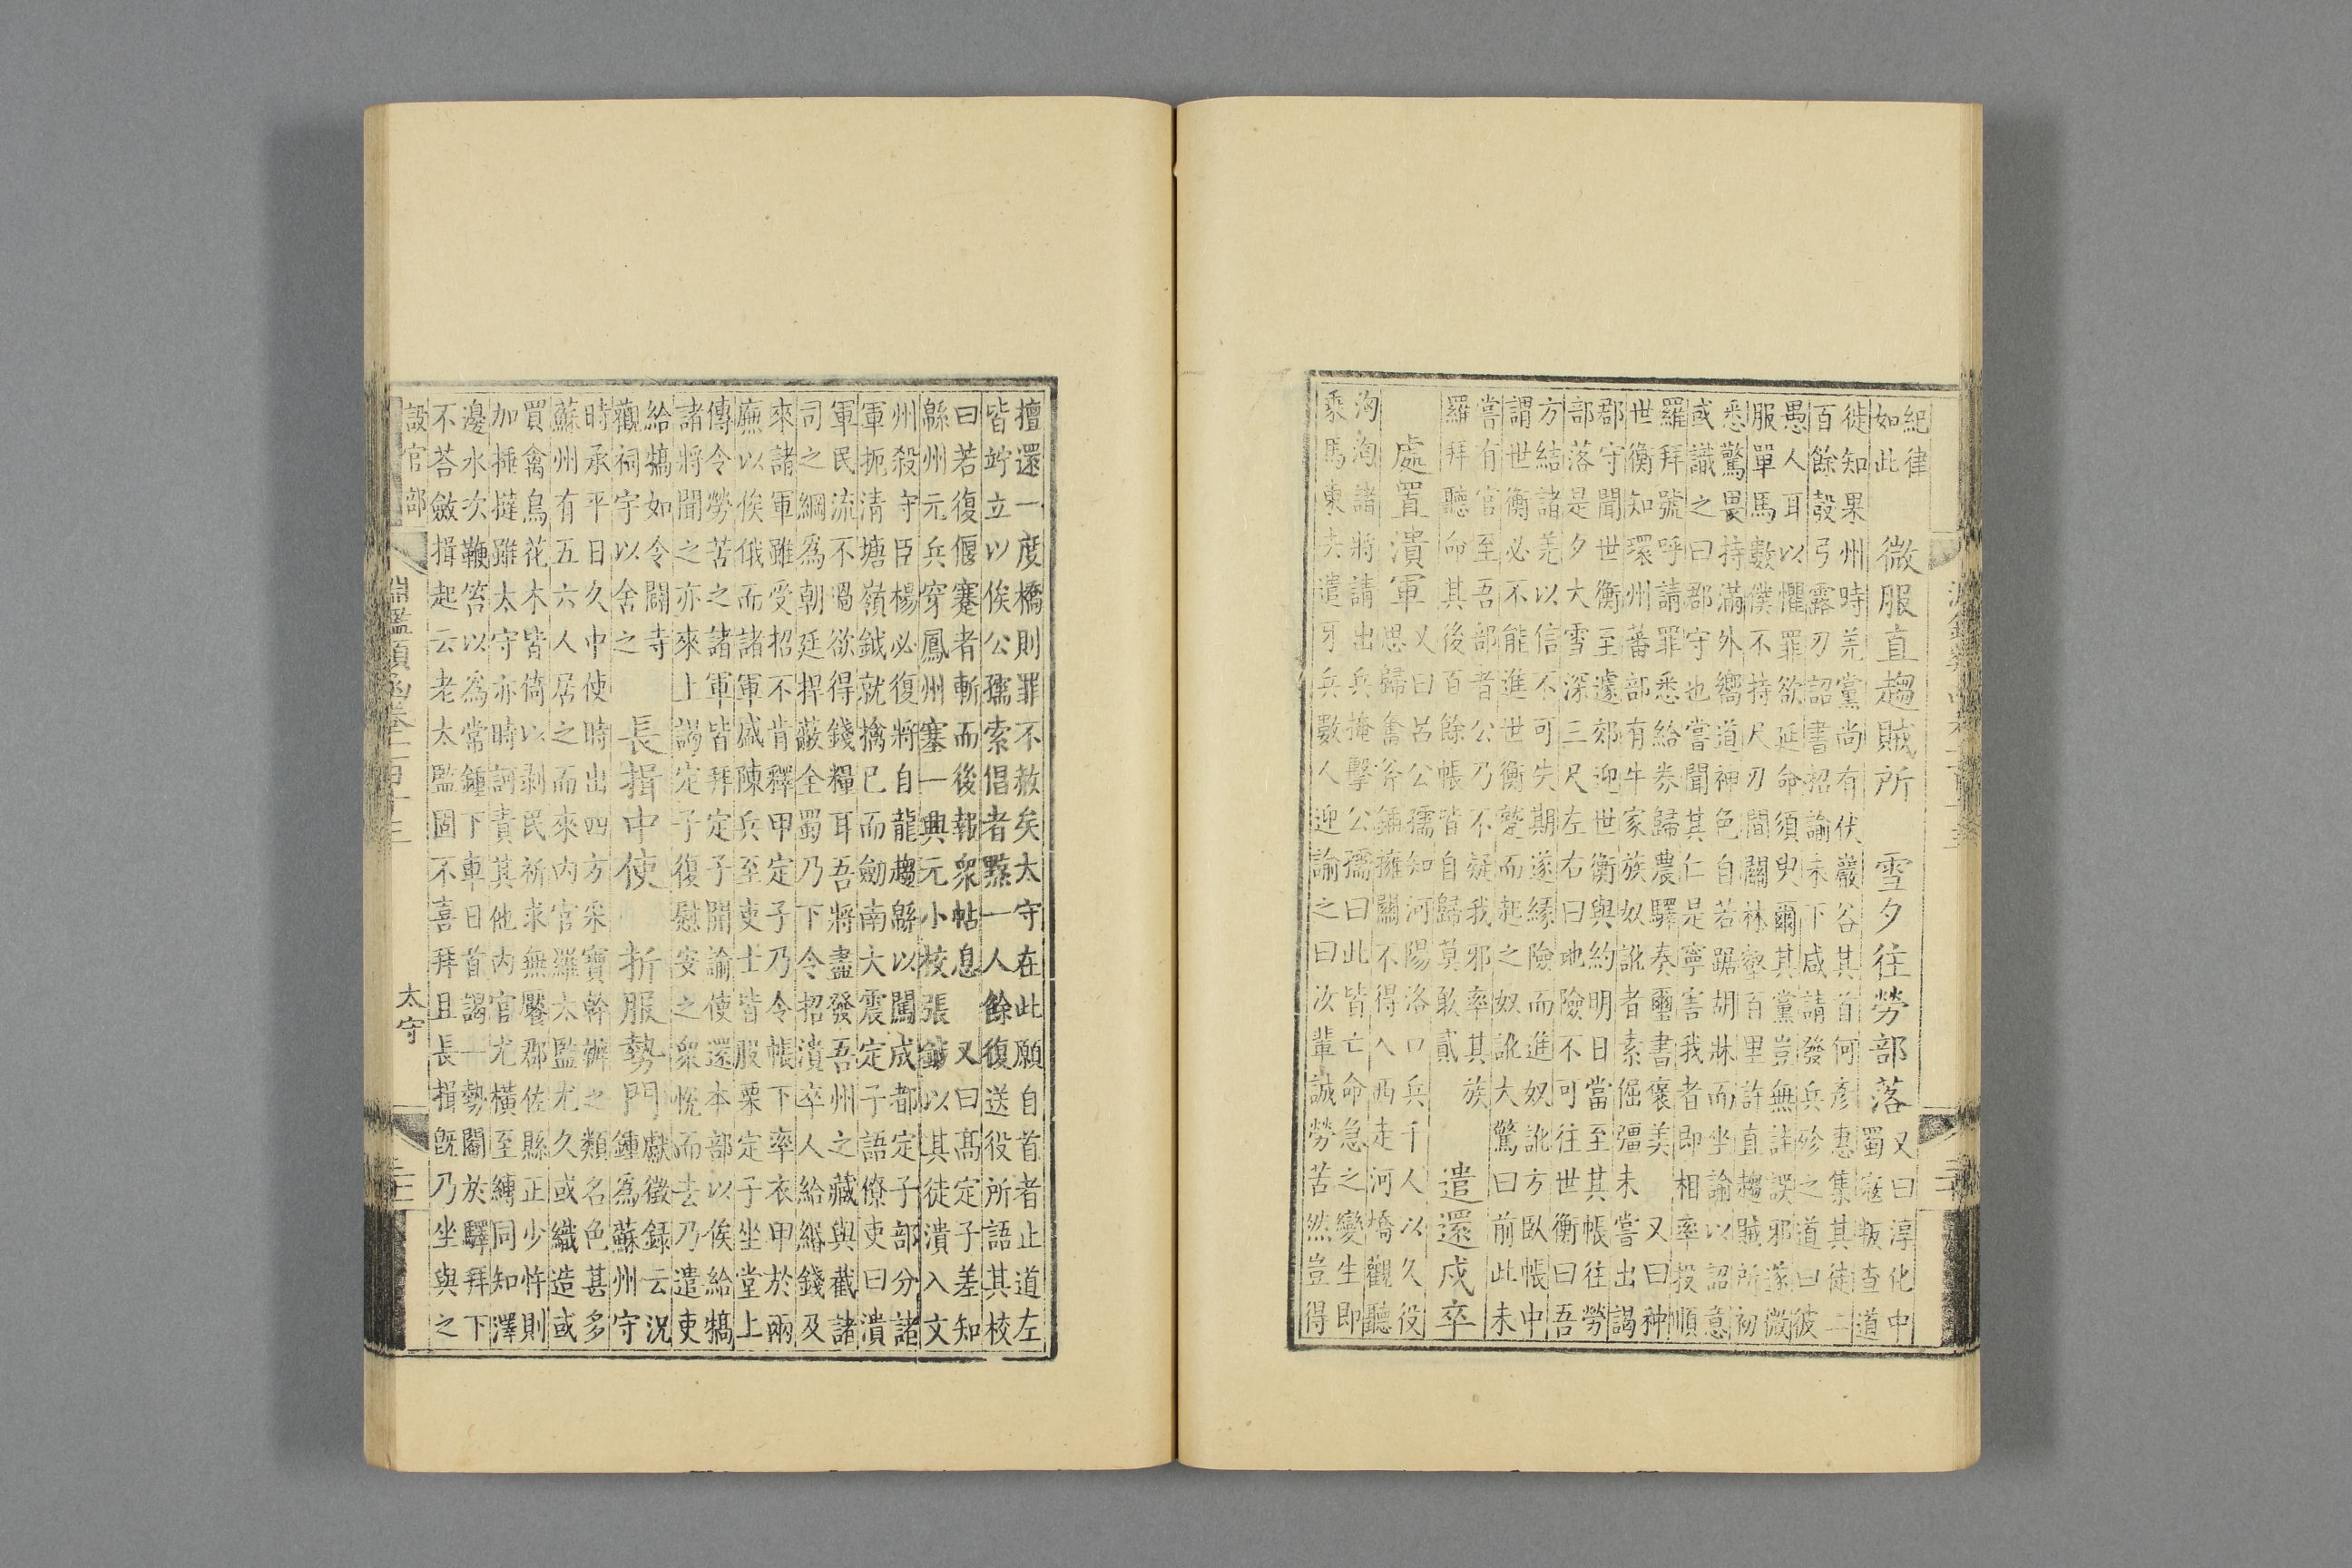 紀律
如此
微服直趨賊所
雪夕往勞部落
又曰淳化中
蜀寇叛查道
徙知果州時羌黨尚有伏巖谷其首何彥惠集其徒二
百餘彀弓露刃詔書招諭未下咸請發兵殄之道曰彼
愚人耳以懼罪欲延命須臾爾其黨豈無詿誤邪遂微
服單馬數僕不持尺刃間關林壑百里許直趨賊所初
悉驚畏持滿外嚮道神色自若踞胡牀而坐諭以詔意
或識之曰郡守也嘗聞其仁是寧害我者即相率投順
羅拜號呼請罪悉給券歸農驛奏璽書襃美 又曰种
世衡知環州蕃部有牛家族奴訛者素倔彊未嘗出謁
郡守聞世衡至遽郊迎世衡與約明日當至其帳往勞
部落是夕大雪深三尺左右曰地險不可往世衡曰吾
方結諸羌以信不可失期遂緣險而進奴訛方臥帳中
謂世衡必不能進世衡蹵而起之奴訛大驚曰前此未
嘗有官至吾部者公乃不疑我邪率其族
羅拜聽命其後百餘帳皆自歸莫敢貳
遣還戍卒
處置潰軍
又曰呂公孺知河陽洛口兵千人以久役
思歸奮斧鍤擁關不得入西走河橋觀聽
洶洶諸將請出兵掩擊公孺曰此皆亡命急之變生即
乘馬東去遣牙兵數人迎諭之曰汝輩誠勞苦然豈得
擅還一度橋則罪不赦矣太守在此願自首者止道左
皆竚立以俟公孺索倡者黥一人餘復送役所語其校
曰若復偃蹇者斬而後報衆帖息 又曰高定子差知
緜州元兵穿鳳州塞一興元小校張鉞以其徒潰入文
州殺守臣楊必復將自龍趨緜以闖成都定子部分諸
軍扼清塘嶺鉞就擒已而劒南大震定子語僚吏曰潰
軍民流不遏欲得錢糧耳吾將盡發吾州之藏與截諸
司之綱爲朝廷捍蔽全蜀乃下令招潰卒人給緡錢及
來諸軍雖受招不肯釋甲定子乃令帳下率衣甲於兩
廡以俟俄而諸軍咸陳兵至吏士皆服栗定子坐堂上
傳令勞苦之諸軍皆拜定子開諭使還本部以俟給犒
諸將聞之亦來上謁定子復慰安之衆恱而去乃遣吏
給犒如令闢寺
觀祠宇以舍之
長揖中使
折服勢門
獻徵錄云況
鍾爲蘇州守
時承平日久中使時出四方采寶幹辦之類名色甚多
蘇州有五六人居之而來內官羅太監尤久或織造或
買禽鳥花木皆倚以剝民祈求無饜郡佐縣正少忤則
加捶撻雖太守亦時訶責其他內官尤橫至縛同知澤
邊水次鞭笞以爲常鍾下車日首謁一勢閹於驛拜下
不荅斂揖起云老太監固不喜拜且長揖旣乃坐與之
設官部
淵鑑類函卷一百十三
太守